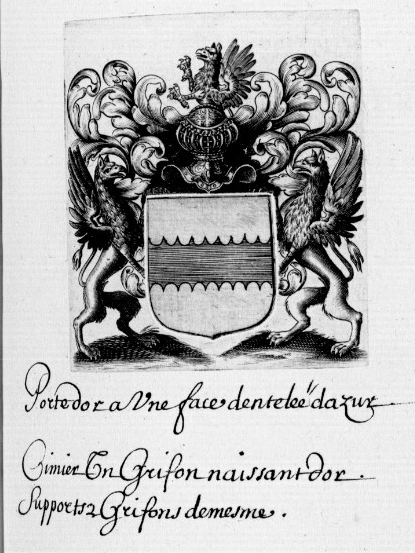 Porte dor a Vne face denteleé dazur
Cimier Un Grifon naissant dor .
Supports 2 Grifons demesme .